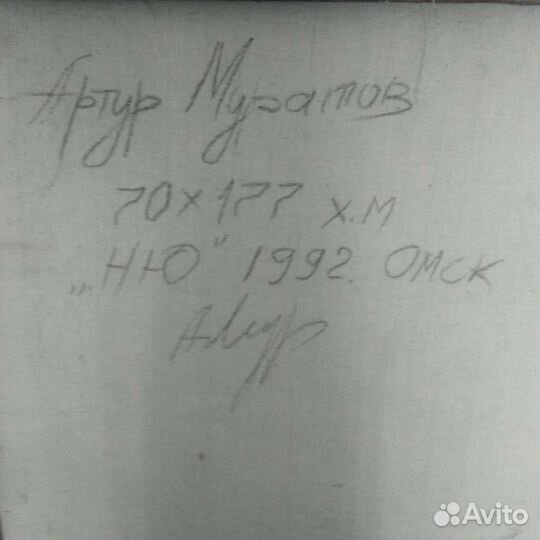 Артур Муратов
70x177 х.м
„НЮ" 1992. ОМСК
АМур
Avito